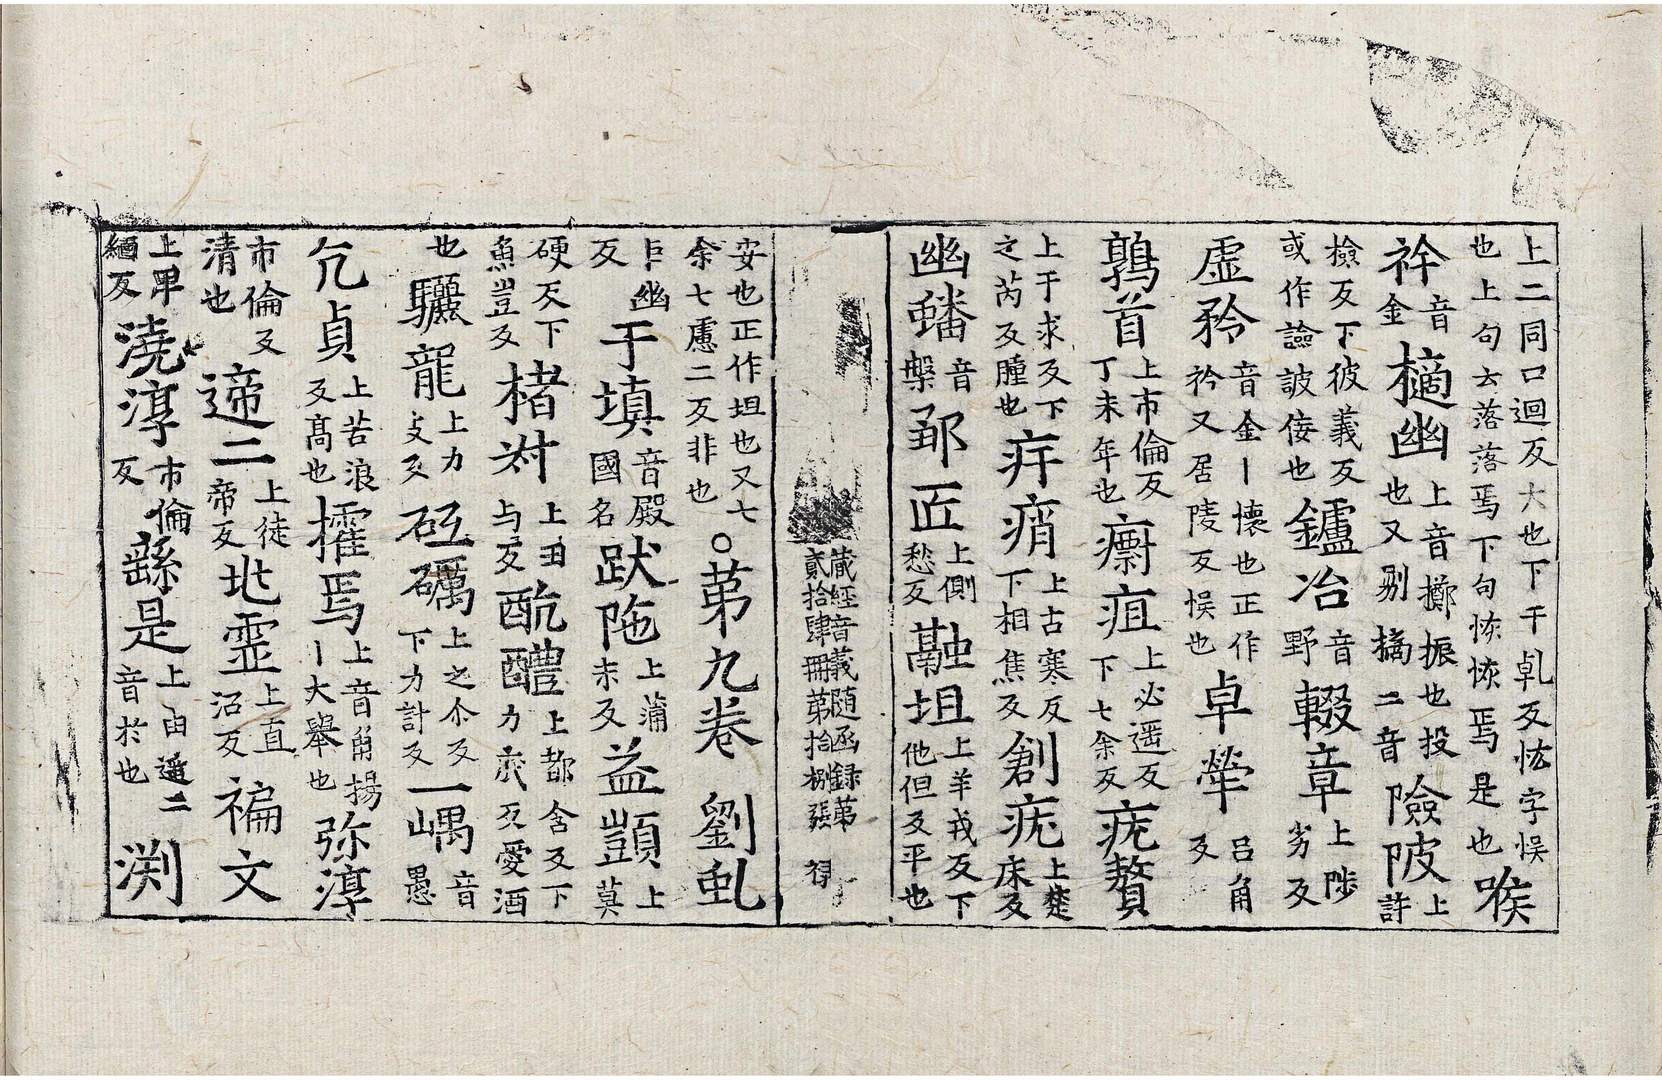 上二同口迴反大也下千乹反恡字悮也上句去落落焉下句恢恢焉是也喉
衿音金擿幽上音擲振也投也又剔摛二音險陂上許
檢反下彼義反或作譣詖倿也鑪冶音野輟章上陟劣反
虛矜音金丨懷也正作衿又居陵反悮也卓犖呂角反
鶉首上市倫反丁未年也疽上必遥反下七余反疣贅
上于求反下之芮反腫也痟上古寒反下相焦反創疣上楚床反
幽蟠音槃匠上側愁反融坦上羊戎反下他但反平也
藏經音義随函録第貳拾肆冊第拾捌張 得
安也正作坦也又七余七慮二反非也○第九卷 劉虬
巨幽反于填音殿國名跋陁上蒲末反益顗上莫
硬反下魚豈反楮對上丑与反酖醴上都含反下力底反愛酒
也驪龍上力支反砥礪上之尒反下力計反一嵎音愚
亢貞上苦浪反髙也搉焉上音角揚丨大舉也弥淳
市倫反清也遆二上徒帝反地靈上直沼反褊文
上卑緬反澆淳市倫反繇是上由遥二音於也渕